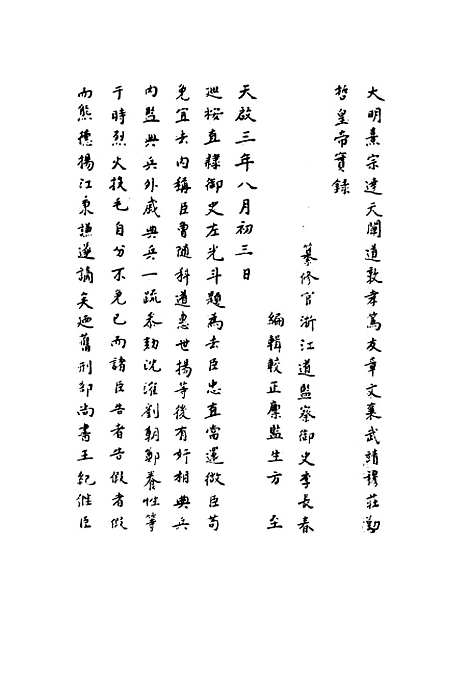 大明熹宗達天闡道敦孝篤友章文襄武靖穆莊勤
悊皇帝實錄
纂修官浙江道監察御史李長春
編輯較正廩監生方至
天啟三年八月初三日
廵按直隸御史左光斗題為去臣忠直當還微臣苟
免宜去內稱臣曾隨科道惠世揚等後有奸相典兵
內監典兵外戚典兵一疏叅劾沈㴶劉朝鄭養性等
于時烈火揆毛自分不免已而諸臣告者告假者假
而熊德揚江秉謙遂謫矣廼舊刑部尚書王紀繼臣